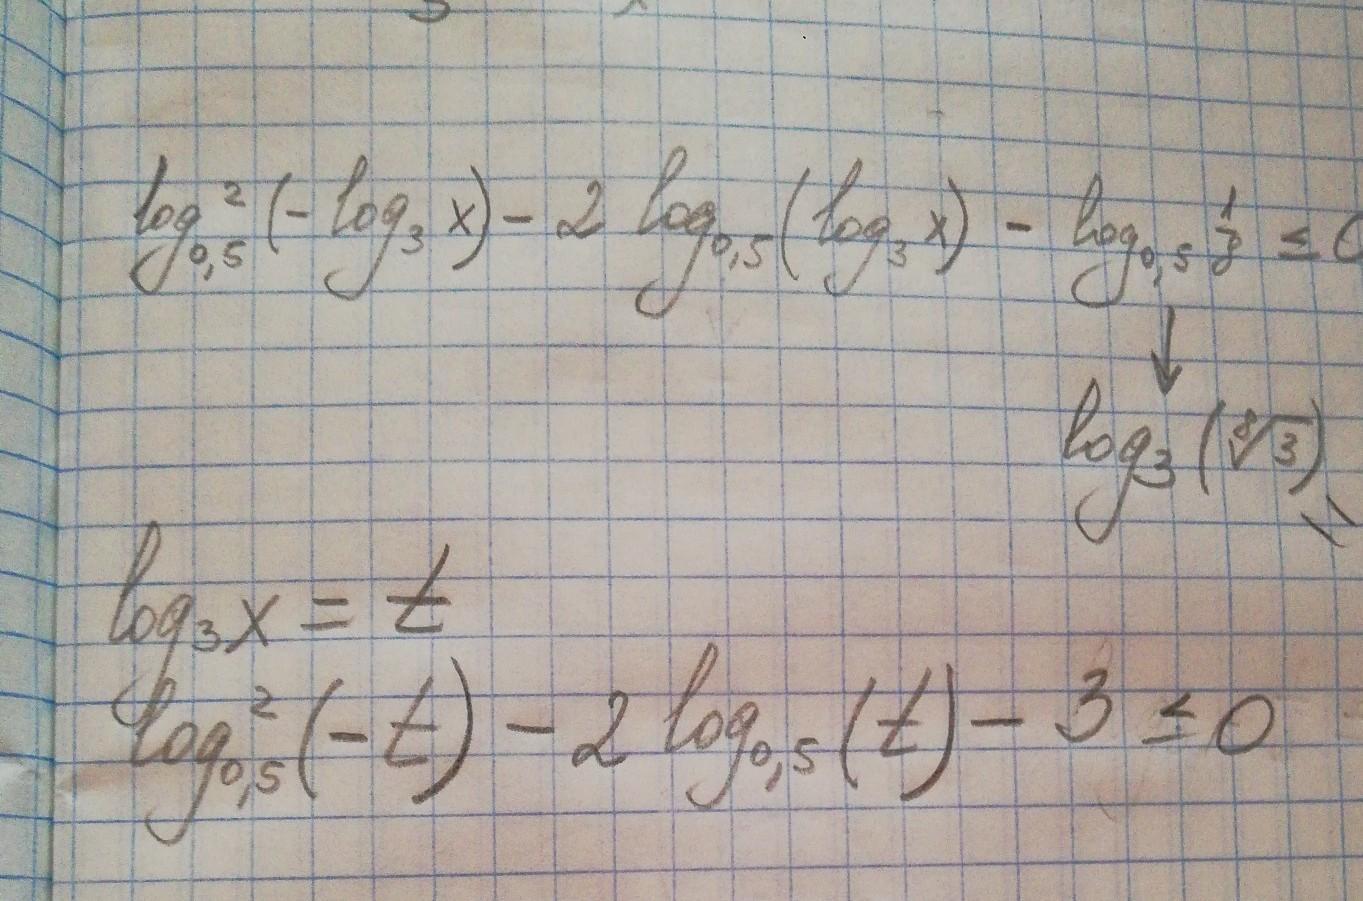 log²₀,₅(-log₃x) - 2 log₀,₅(log₃x) - log₀,₅ 1/8 ≤ 0
↓
log₃(⁸√3)
log₃x = t
log²₀,₅(-t) - 2 log₀,₅(t) - 3 ≤ 0